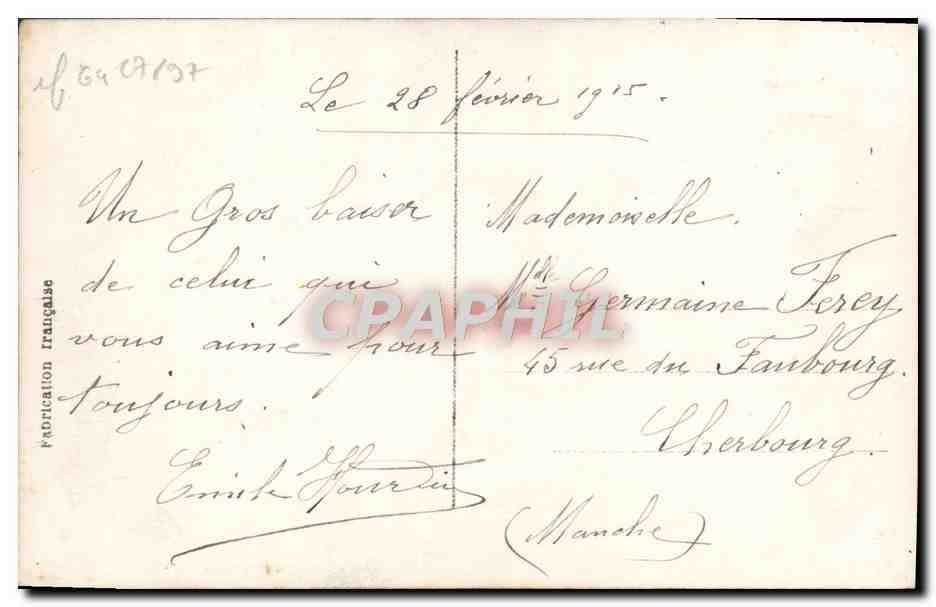 64 27/97
Le 28 février 1915.
Un Gros baiser
de celui qui
vous aime pour
toujours.
Emile Hourdin
Mademoiselle.
Mlle Germaine Ferey
45 rue du Faubourg.
Cherbourg.
(Manche)
Fabrication française
CPAPHIL